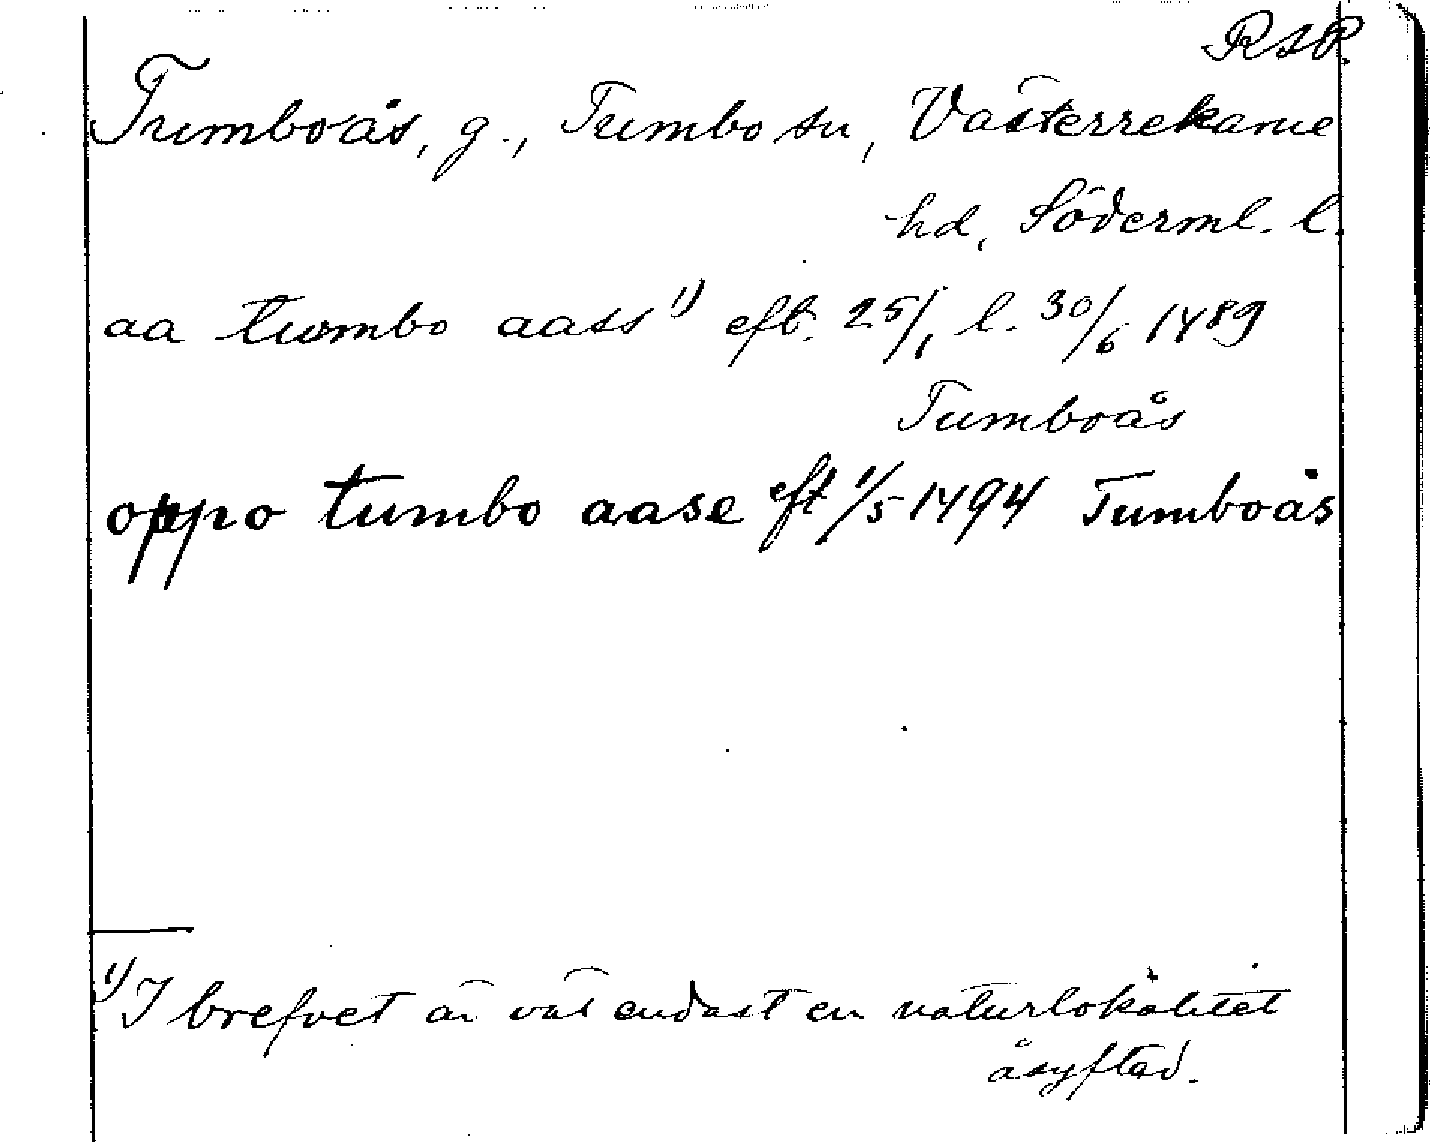 RAP.
Tumboås, g., Tumbo sn, Västerrekarne
hd, Söderml. l.
aa tumbo aass 1) eft. 25/1 l. 30/6 1489
Tumboås
oppo tumbo aase eft 1/5 1494 Tumboås
1) I brefvet är väl endast en naturlokalitet
åsyftad.